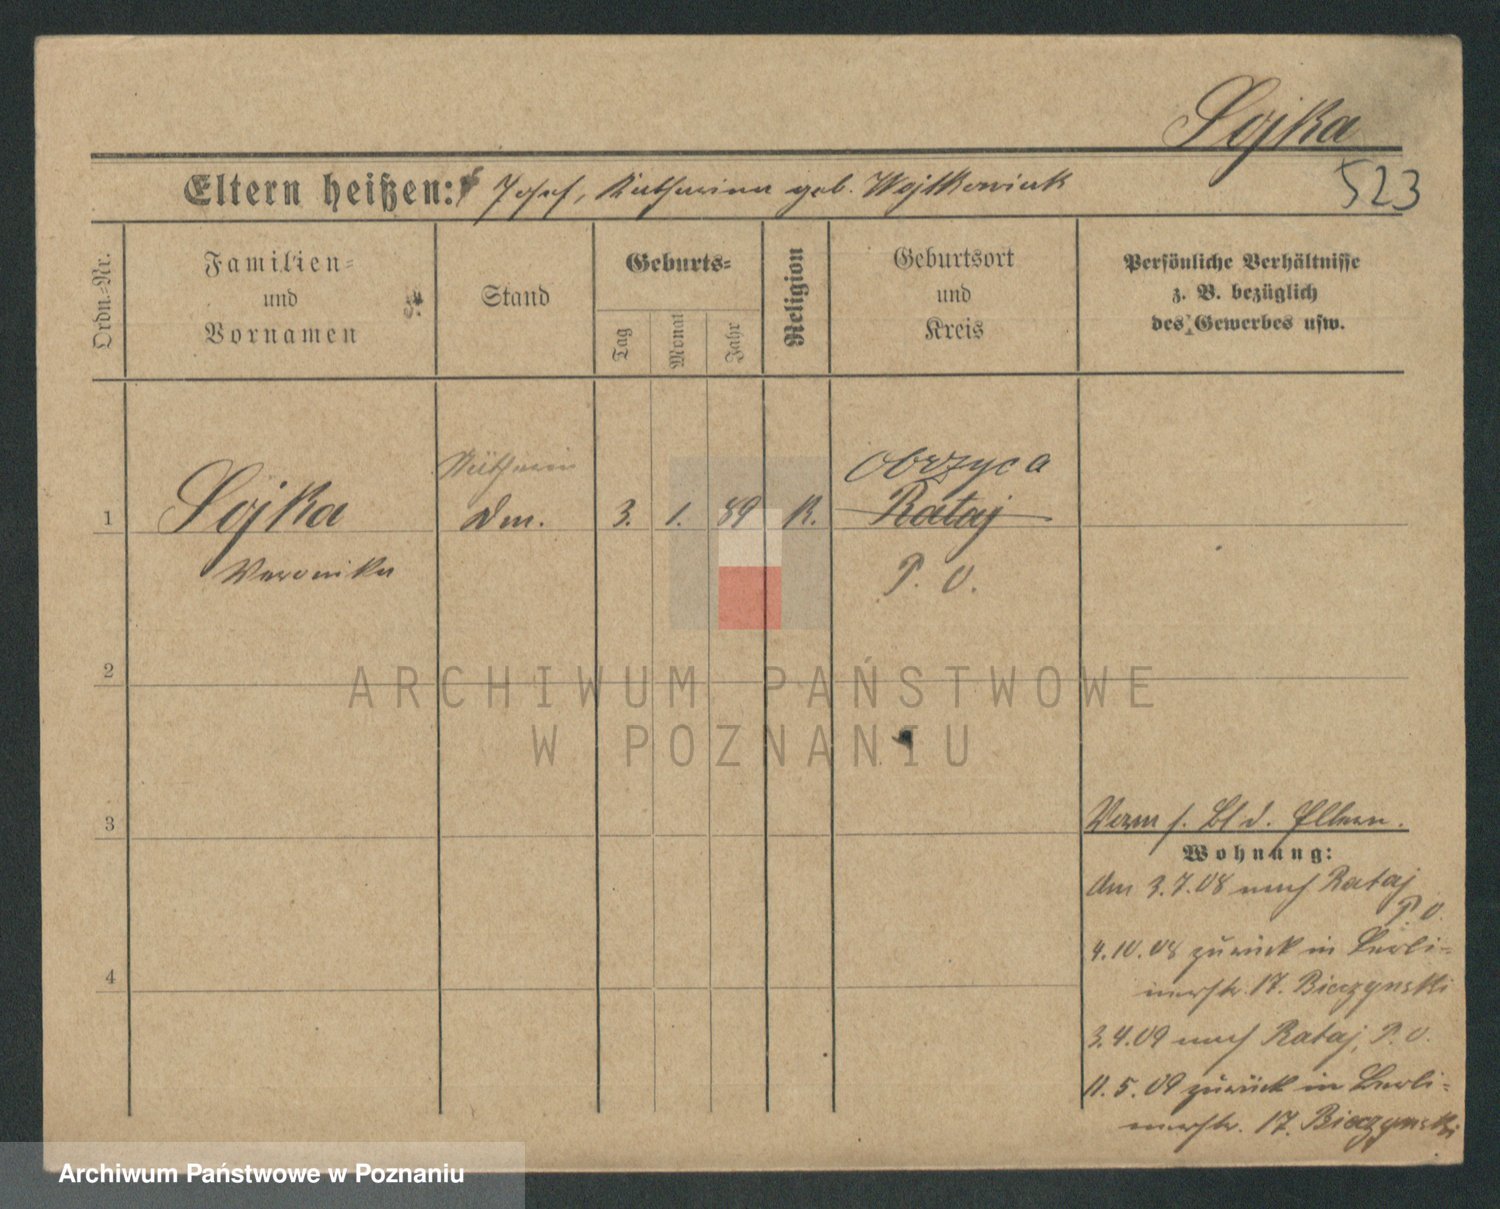 Sojka
523
Eltern heißen: Josef, Katharina geb. Wojtkowiak
Ordn.-Nr.
Familien-
und
Vornamen
Stand
Geburts-
Tag
Monat
Jahr
Religion
Geburtsort
und
Kreis
Persönliche Verhältnisse
z. B. bezüglich
des Gewerbes usw.
Obrzyca
1 Sojka Dm. 3. 1. 89 K. Rataj
Veronika P. O.
2
ARCHIWUM PAŃSTWOWE
W POZNANIU
3
Verm s. Bl d. Eltern.
Wohnung:
Am 3.7.08 nach Rataj
P. O.
4.10.08 zurück in Berli-
4
nerstr. 17. Bieczynski
3.4.09 nach Rataj, P. O.
11.5.09 zurück in Berli-
nerstr. 17. Bieczynski
Archiwum Państwowe w Poznaniu